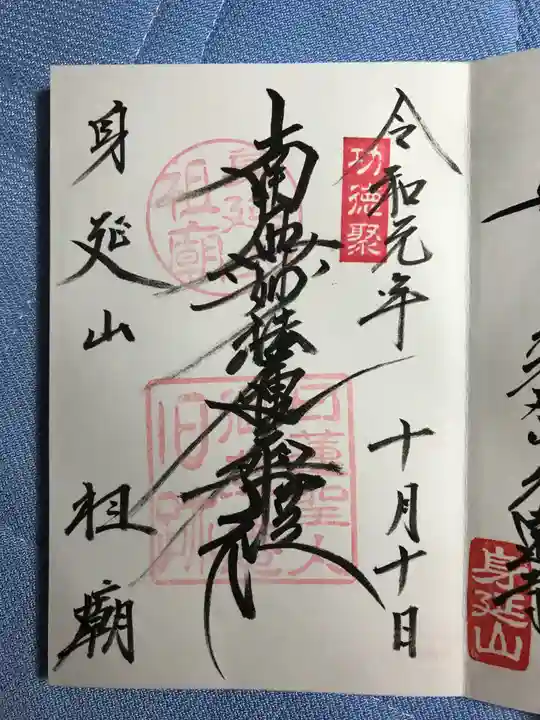 令和元年 十月十日
功徳聚
南無妙法蓮華経
身延山 祖廟
身延
祖廟
日蓮聖人
御草庵
旧跡
身延山